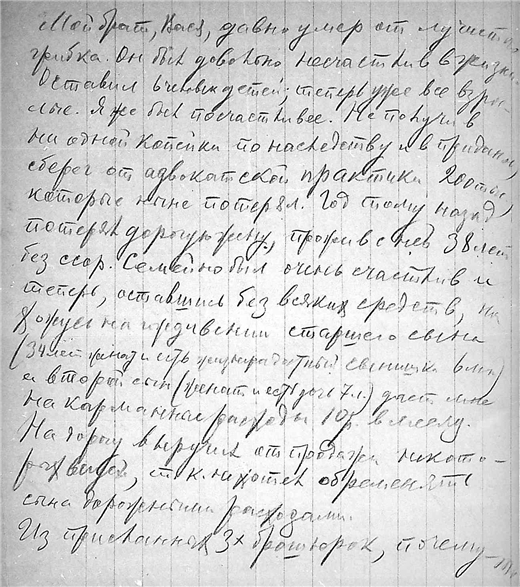 Мой брат, Вася, давно умер от лучистого
грибка. Он был довольно несчастлив в жизни.
Оставил 6 человек детей; теперь уже все взро-
слые. Я же был посчастливее. Не получив
ни одной копейки по наследству и в приданое,
сберег от адвокатской практики 200 тыс,
которые ныне потерял. Год тому назад
потерял дорогую жену, прожив с ней 38 лет
без ссор. Семейно был очень счастлив и
теперь, оставшись без всяких средств, на
хожусь на иждивении старшего сына
(34 лет женат и есть сынишка 6 л.)
а второй сын (женат и есть дочь 7 л.) дает мне
на карманные расходы 10р. в месяц.
На дорогу выручил от продажи некото-
рых вещей, т.к. не хотел обременить
сына дорожными расходами.
Из присланных 3х брошюрок, почему-то